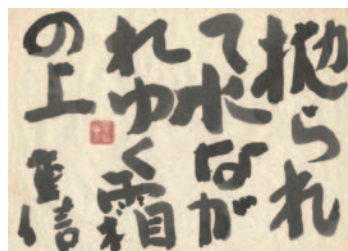 抛られ
て水なが
れゆく霜
の上
重信